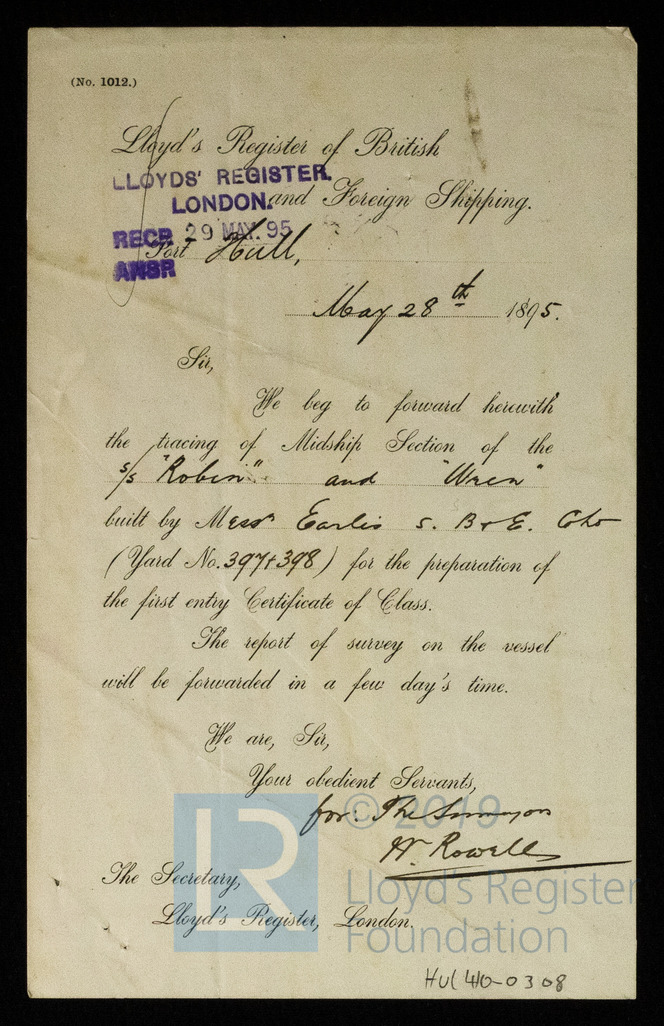 (No. 1012.)
Lloyd's Register of British
LLOYDS' REGISTER.
LONDON.
and Foreign Shipping.
RECD 29 MAY. 95
Port Hull,
ANSR
May 28th 1895.
Sir,
We beg to forward herewith
the tracing of Midship Section of the
s/s "Robin" and "Wren"
built by Messrs Earles S. B & E. Co
(Yard No. 397+398) for the preparation of
the first entry Certificate of Class.
The report of survey on the vessel
will be forwarded in a few day's time.
We are, Sir,
Your obedient Servants,
for: The Surveyors
W. Rowell
The Secretary,
Lloyd's Register, London.
LR
© 2019
Lloyd's Register
Foundation
HUL410-0308